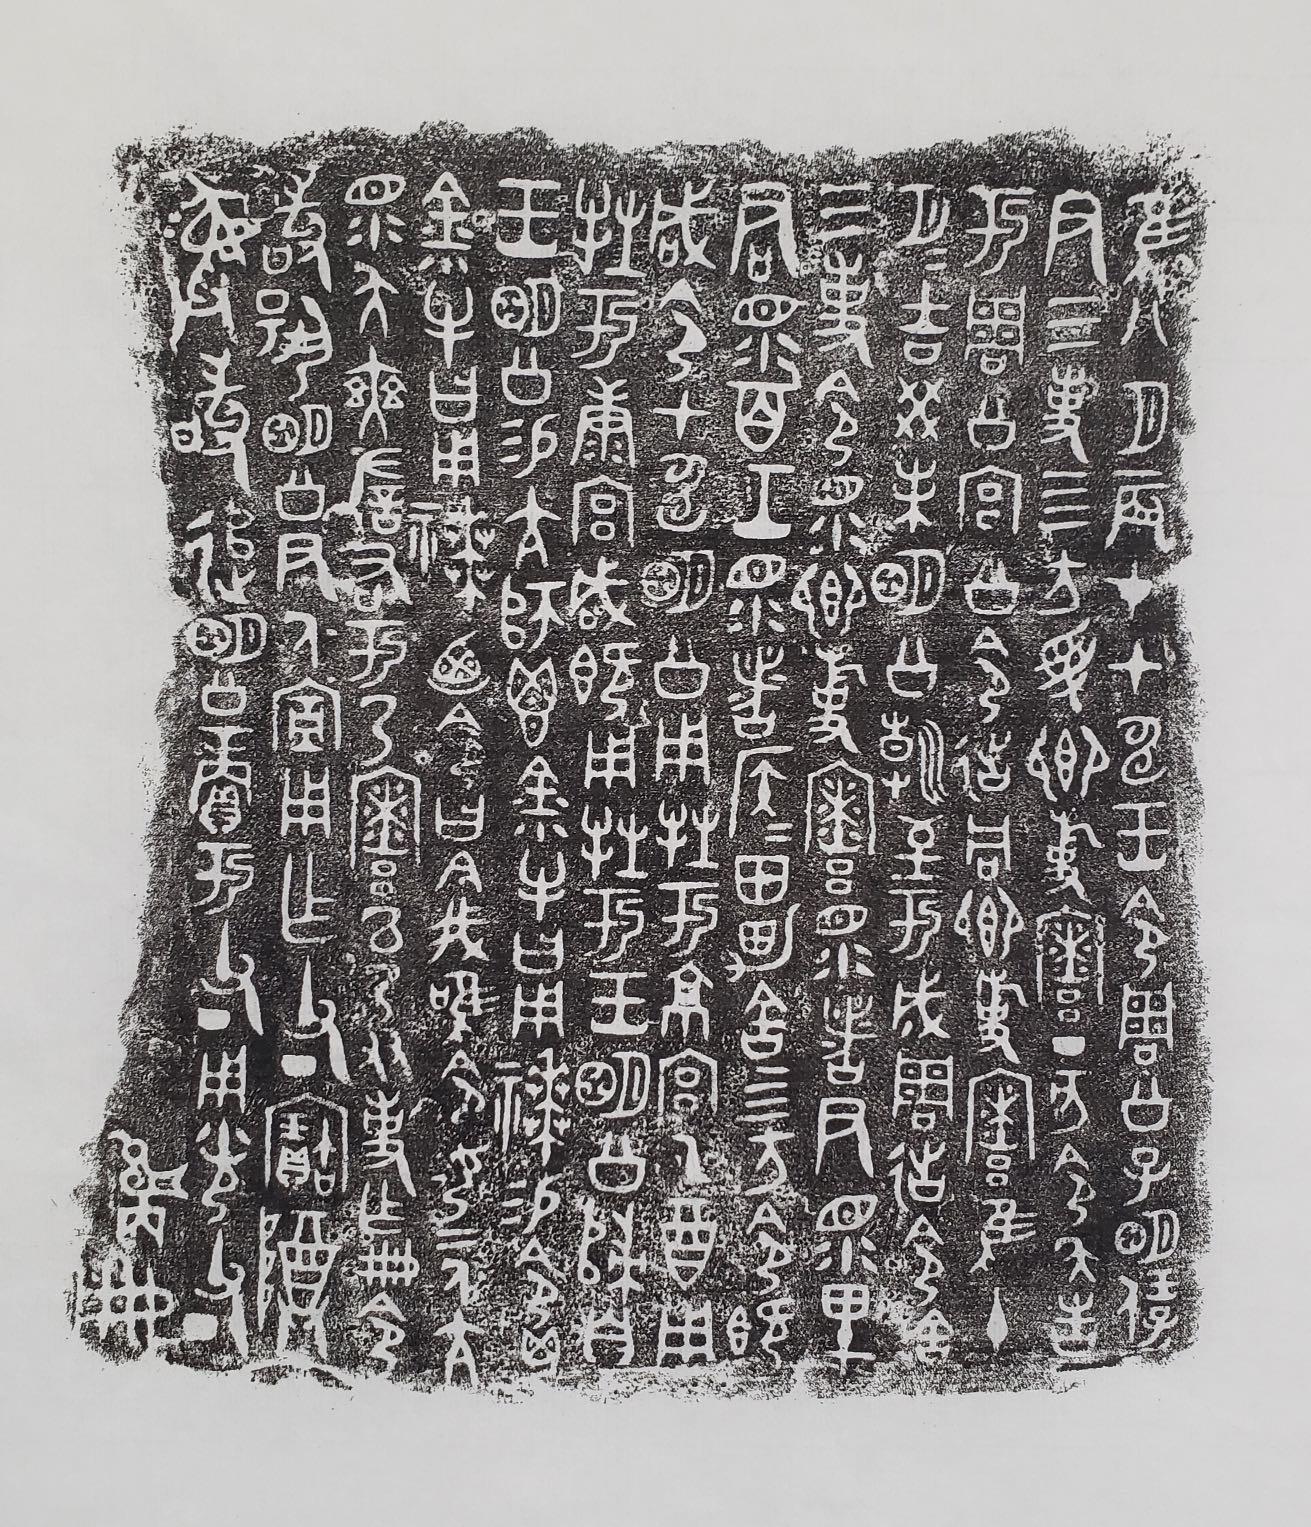 隹八月辰才甲申王令周公子明保
尹三事四方受卿事寮丁亥令夨告
于周公宮公令𢓊同卿事寮隹十
月月吉癸未明公朝至于成周𢓊令舍
三事令眔卿事寮眔者尹眔里
君眔百工眔者侯侯田男舍四方令既
咸令甲申明公用牲于京宮乙酉用
牲于康宮咸既用牲于王明公歸自
王明公易亢師鬯金小牛曰用𥛔易令鬯
金小牛曰用𥛔迺令曰今我唯令女二人亢
眔夨奭左右于乃寮以乃友事乍冊令
敢揚明公尹氒宣用乍父丁寶尊
彝敢追明公賞于父丁用光父丁
冊